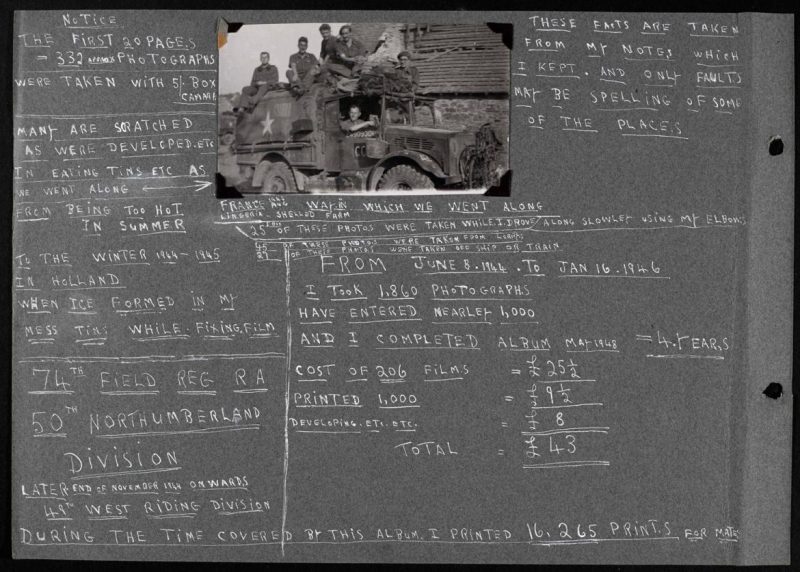 NOTICE
THE FIRST 20 PAGES
= 332 PHOTOGRAPHS
WERE TAKEN WITH 5/- BOX
CAMARA
MANY ARE SCRATCHED
AS WERE DEVELOPED.ETC
IN EATING TINS ETC AS
WE WENT ALONG
FROM BEING TOO HOT
IN SUMMER
TO THE WINTER 1944-1945
IN HOLLAND
WHEN ICE FORMED IN MY
MESS TINS WHILE.FIXING.FILM
74TH FIELD REG R A
50TH NORTHUMBERLAND
DIVISION
LATER END OF NOVEMBER 1944 ONWARDS
49TH WEST RIDING DIVISION
THESE FACTS ARE TAKEN
FROM MY NOTES WHICH
I KEPT. AND ONLY FAULTS
MAY BE SPELLING OF SOME
OF THE PLACES
FRANCE AUG WAY IN WHICH WE WENT ALONG
LINGERIA. SHELLED FARM
25 OF THESE PHOTOS WERE TAKEN WHILE.I.DROVE ALONG SLOWLEY USING MY ELBOWS
45 OF THESE PHOTOS WERE TAKEN FROM
OF THESE PHOTOS WERE TAKEN OFF SHIP OR TRAIN
FROM JUNE 8.1944.TO JAN 16.1946
I TOOK 1,860 PHOTOGRAPHS
HAVE ENTERED NEARLEY 1,000
AND I COMPLETED ALBUM MAY 1948 = 4.YEARS
COST OF 206 FILMS = £25½
PRINTED 1,000 = £9½
DEVELOPING.ETC.ETC. = £8
TOTAL = £43
DURING THE TIME COVERED BY THIS ALBUM. I PRINTED 16,265 PRINTS FOR MATES